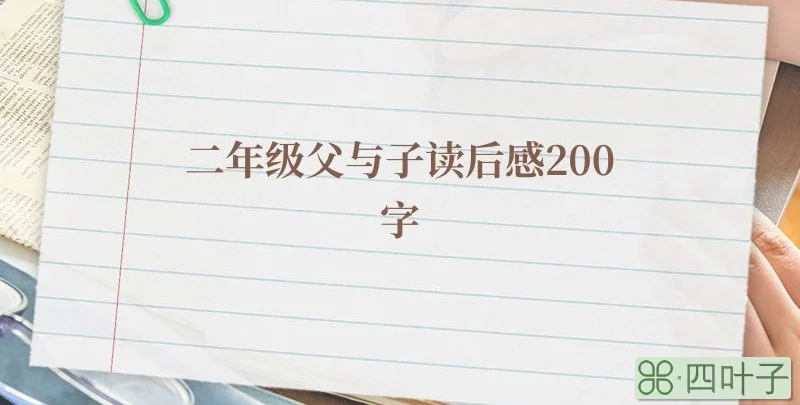 二年级父与子读后感200
字
四叶子